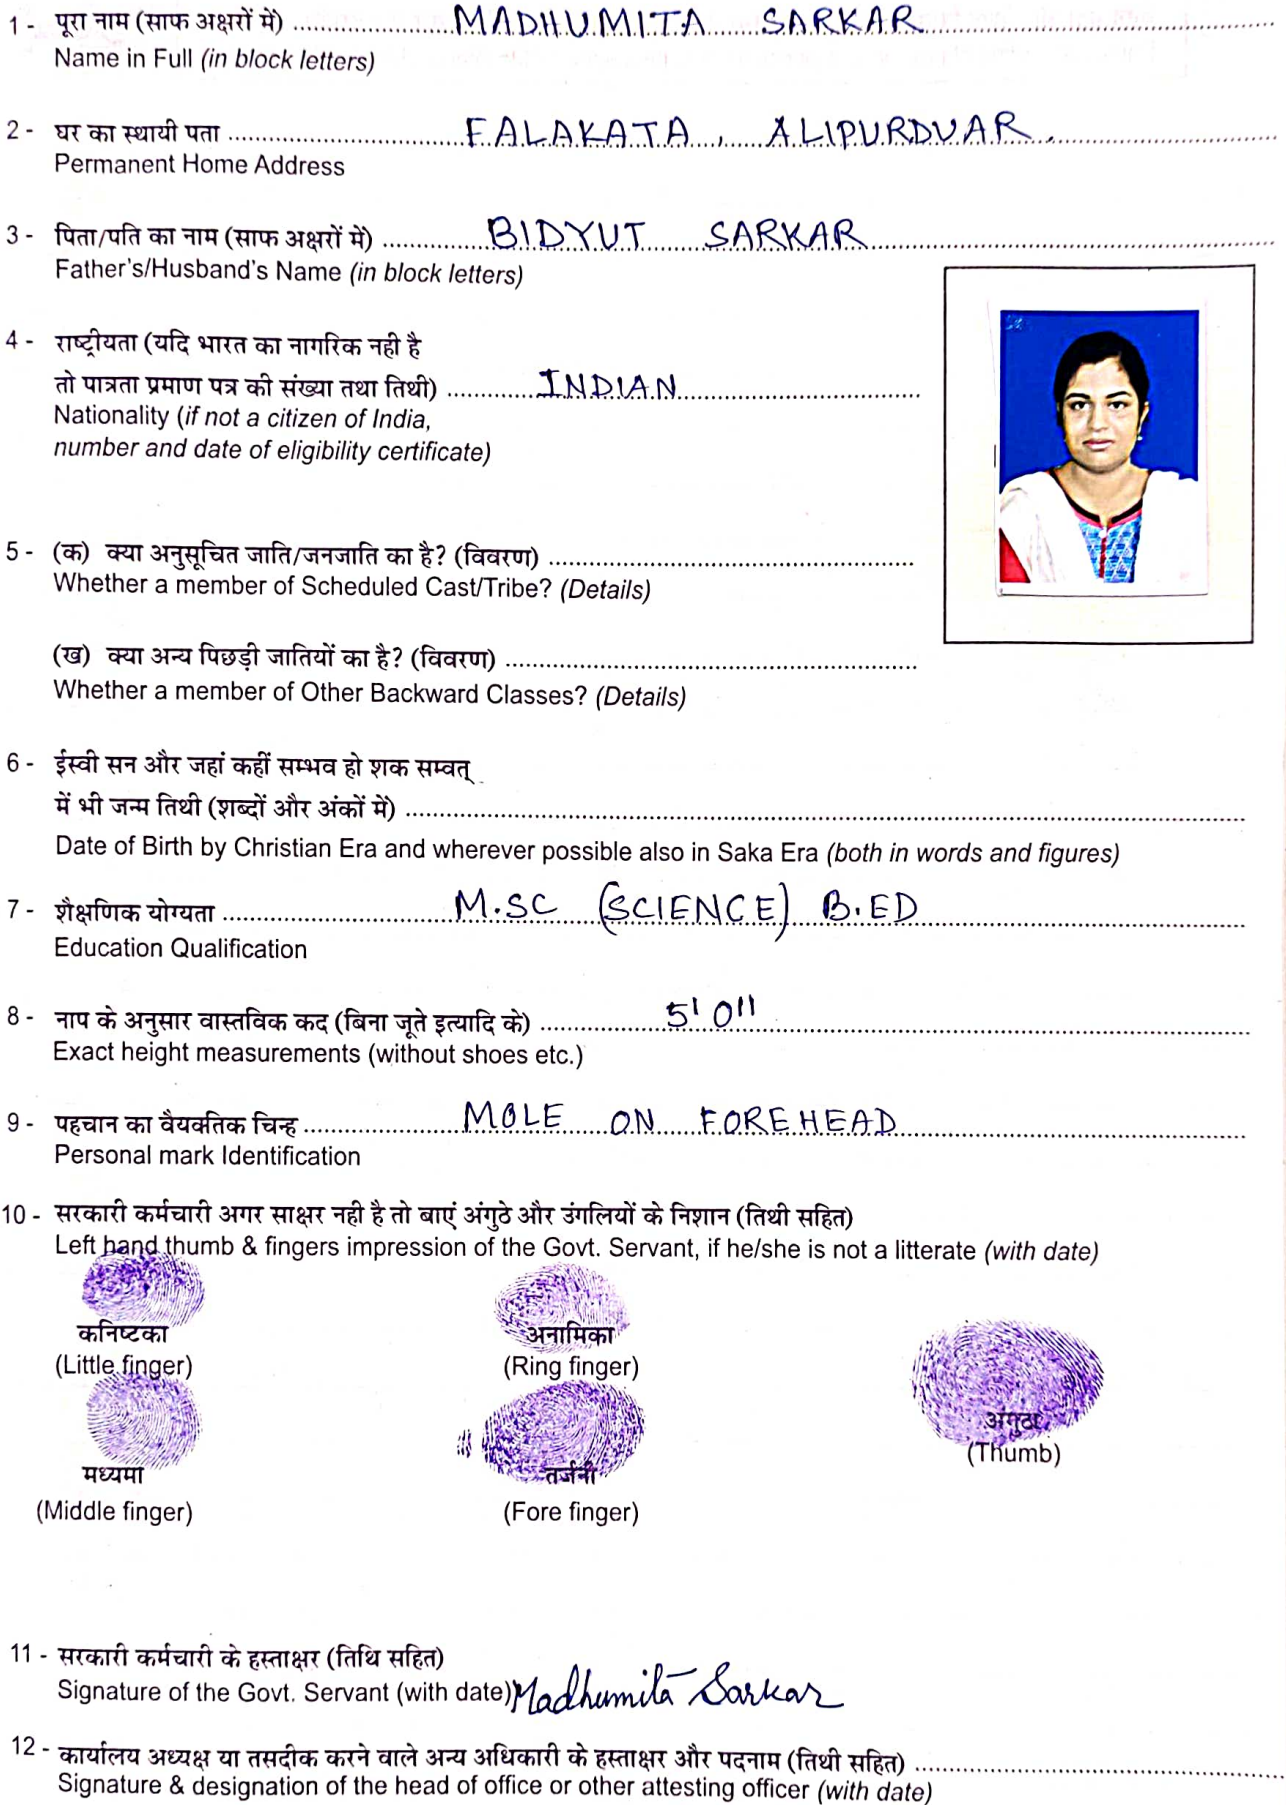 1 - पूरा नाम (साफ अक्षरों में) ..................... MADHUMITA SARKAR .....................
Name in Full (in block letters)
2 - घर का स्थायी पता ..................... FALAKATA, ALIPURDUAR. .....................
Permanent Home Address
3 - पिता/पति का नाम (साफ अक्षरों में) ..................... BIDYUT SARKAR .....................
Father's/Husband's Name (in block letters)
4 - राष्ट्रीयता (यदि भारत का नागरिक नही है
तो पात्रता प्रमाण पत्र की संख्या तथा तिथी) ............... INDIAN .....................
Nationality (if not a citizen of India,
number and date of eligibility certificate)
5 - (क) क्या अनुसूचित जाति/जनजाति का है? (विवरण) .....................
Whether a member of Scheduled Cast/Tribe? (Details)
(ख) क्या अन्य पिछड़ी जातियों का है? (विवरण) .....................
Whether a member of Other Backward Classes? (Details)
6 - ईस्वी सन और जहां कहीं सम्भव हो शक सम्वत्
में भी जन्म तिथी (शब्दों और अंकों में) .....................
Date of Birth by Christian Era and wherever possible also in Saka Era (both in words and figures)
7 - शैक्षणिक योग्यता ..................... M.SC (SCIENCE) B.ED .....................
Education Qualification
8 - नाप के अनुसार वास्तविक कद (बिना जूते इत्यादि के) ............... 5' 0" .....................
Exact height measurements (without shoes etc.)
9 - पहचान का वैयक्तिक चिन्ह ..................... MOLE ON FOREHEAD .....................
Personal mark Identification
10 - सरकारी कर्मचारी अगर साक्षर नही है तो बाएं अंगुठे और उंगलियों के निशान (तिथी सहित)
Left hand thumb & fingers impression of the Govt. Servant, if he/she is not a litterate (with date)
कनिष्टका अनामिका
(Little finger) (Ring finger)
अंगुठा
(Thumb)
मध्यमा तर्जनी
(Middle finger) (Fore finger)
11 - सरकारी कर्मचारी के हस्ताक्षर (तिथि सहित)
Signature of the Govt. Servant (with date) Madhumita Sarkar
12 - कार्यालय अध्यक्ष या तसदीक करने वाले अन्य अधिकारी के हस्ताक्षर और पदनाम (तिथी सहित) .....................
Signature & designation of the head of office or other attesting officer (with date)